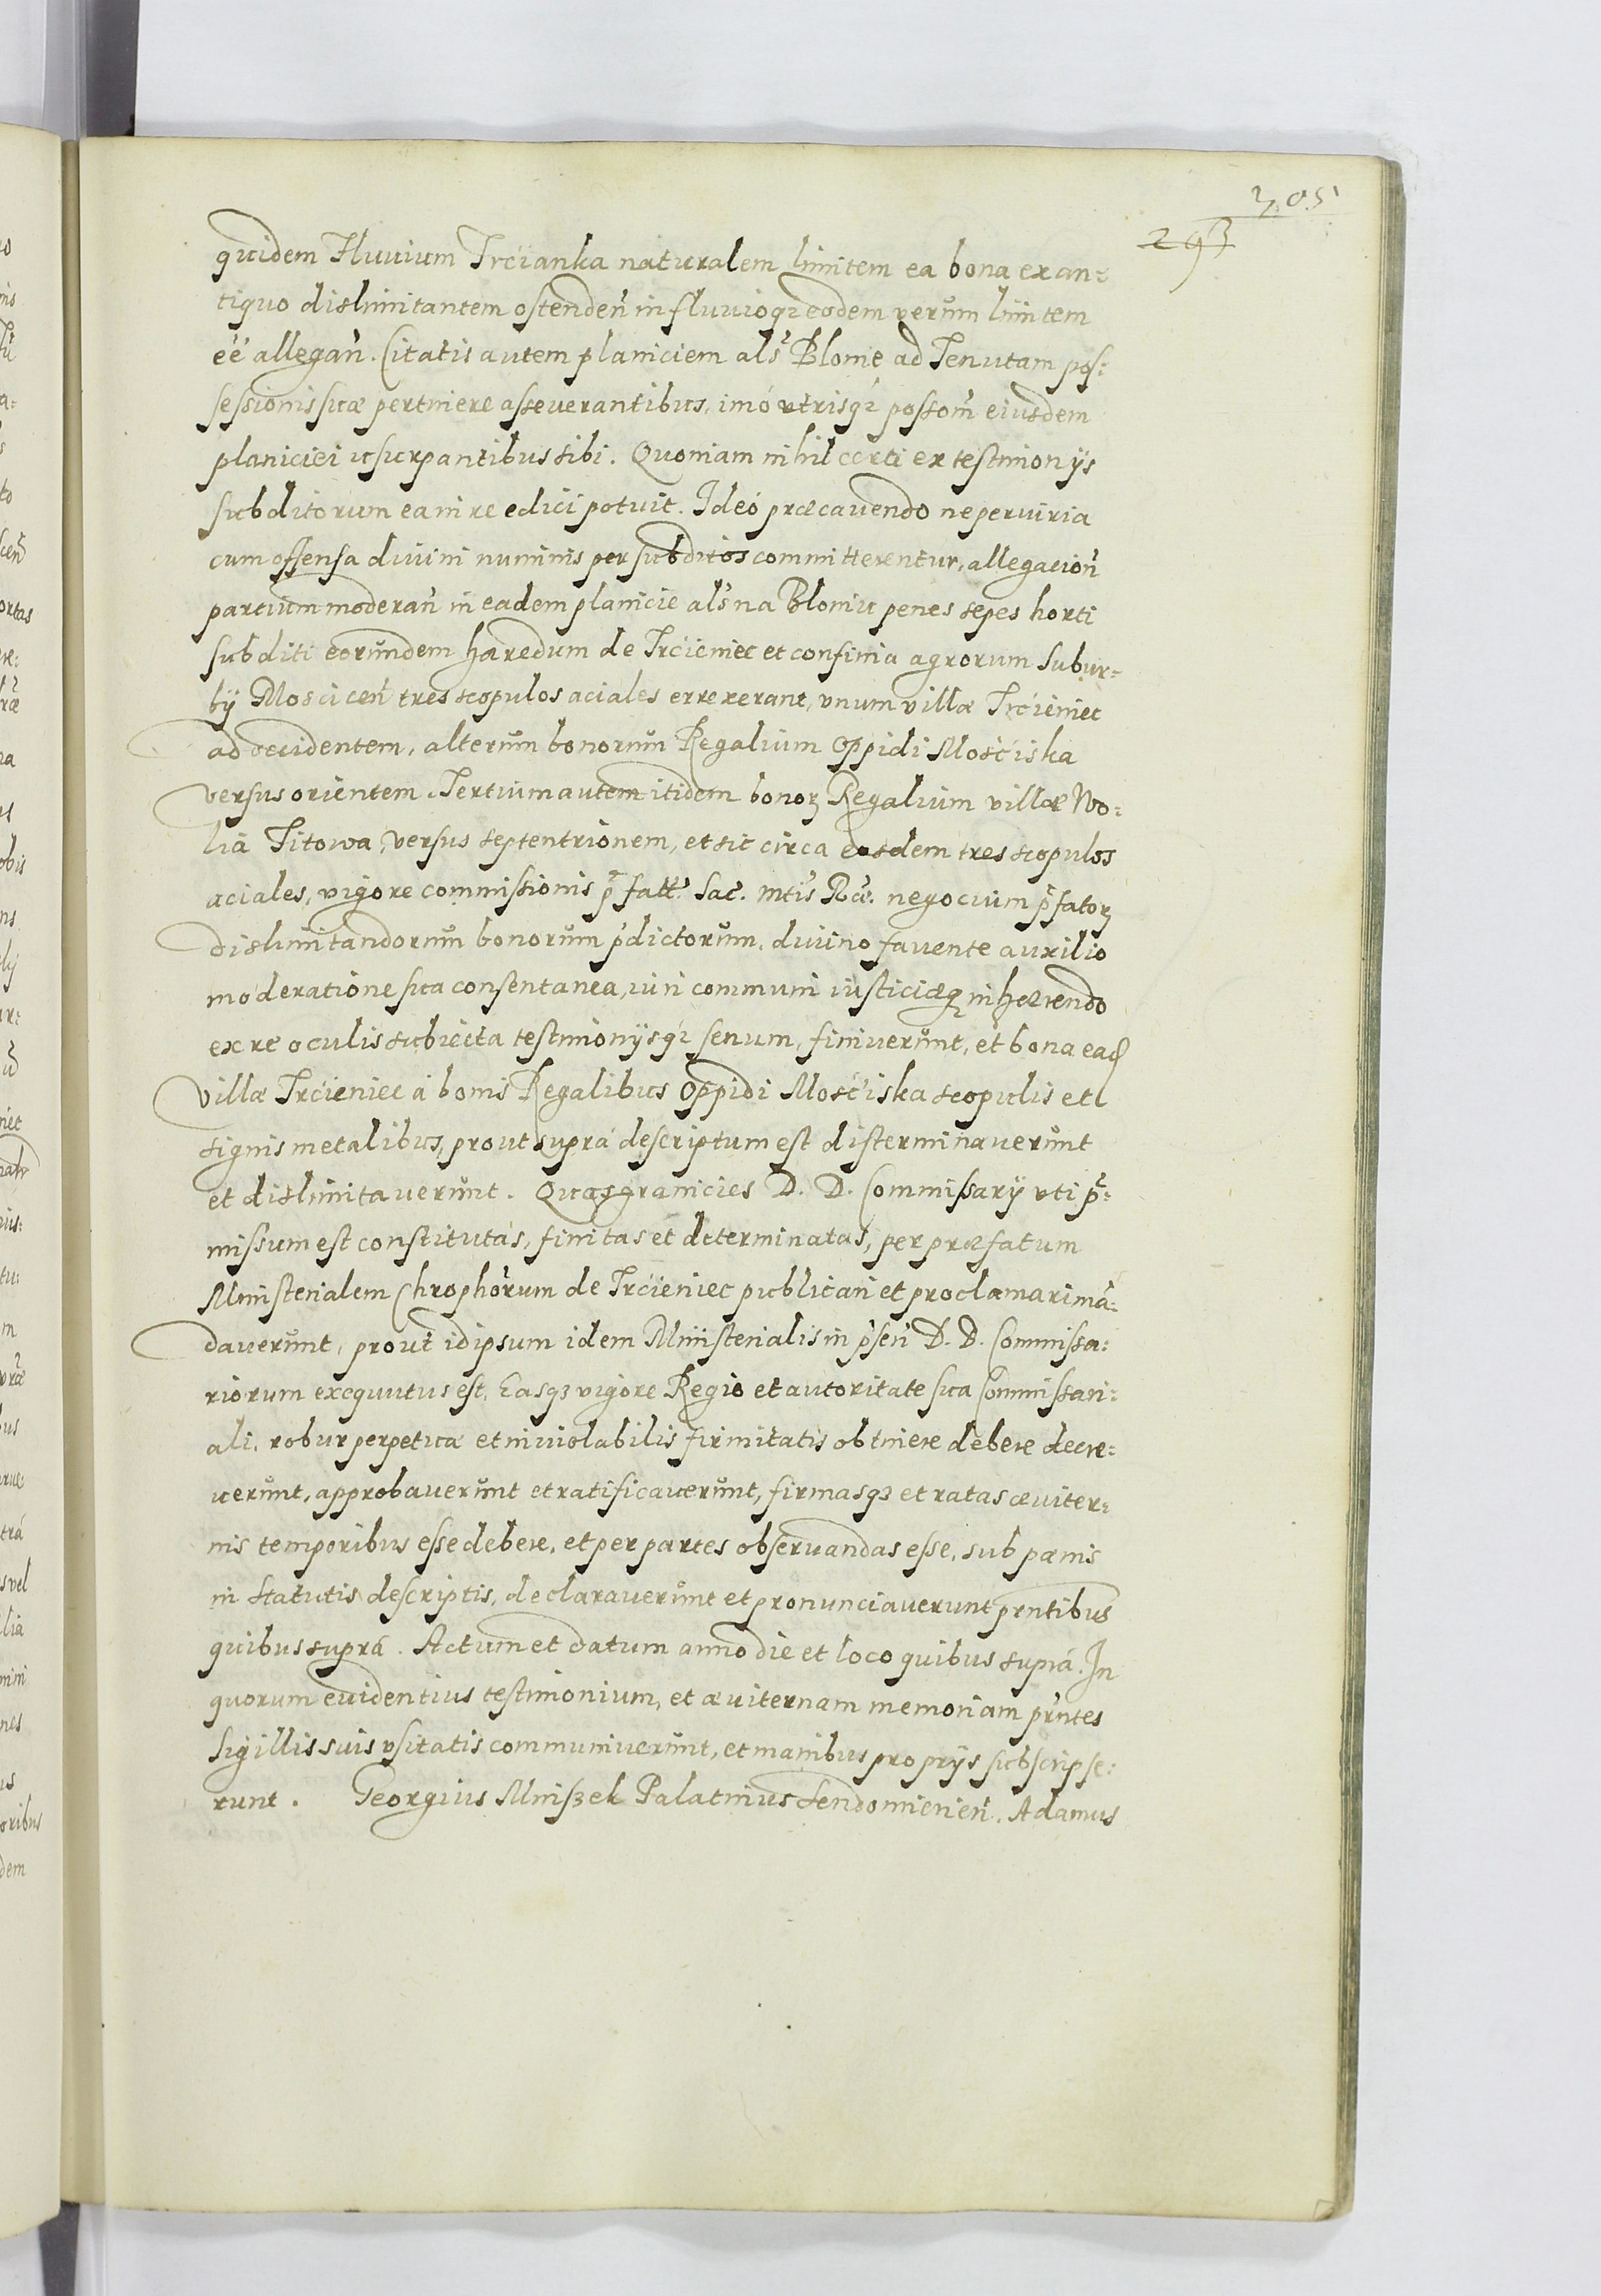 305
293
quidem Fluuium Trcianka naturalem limitem ea bona ex an=
tiquo dislimitantem ostendeñ in fluuioqȝ eodem verũm limitem
eẽ allegañ. Citatis autem planiciem als Blonie ad Tenutam pos=
sessionis suæ pertinere asseverantibus, imó vtrisqȝ possom̃ eiusdem
planiciei usurpantibus sibi. Quoniam nihil certi ex testimonijs
subditorum ea in re edici potuit. Ideó præcavendo ne per
cum offensa diuini numinis per subditos committerentur, allegacioñ
partium moderañ in eadem planicie als na Bloniu penes sepes horti
subditi eorũndem hæredum de Trcieniec et confinia agrorum Subur=
bij Mosciceñ tres scopulos aciales errexerant, vnum villæ Trcieniec
ad occidentem, alterũm bonorũm Regalium Oppidi Mościska
versus orientem. Tertium autem itidem bonoꝝ Regalium villæ Wo=
lia Titowa, versus septentrionem, et sic circa eosdem tres scopulos
aciales, vigore commissionis p̃fatt. Sac̃. Mtis Ræ. negocium p̃fatoꝝ
dislimitandorum bonorũm p̃dictorũm, diuino favente auxilio
moderatione sua consentanea, iuri communi iusticiæqȝ inhærendo
ex re oculis subiecta testimonijsqȝ senum, finiverũnt, et bona ead
villæ Trcieniec á bonis Regalibus Oppidi Mościska scopulis et
signis metalibus, prout suprá descriptum est disterminaverũnt
et dislimitaverũnt. Quas granicies D. D. Commissarij vti p̃=
missum est constitutás, finitas et determinatas, per præfatum
Ministerialem Chrophõrum de Trcieniec publicari et proclamari mã=
daverũnt, prout idipsum idem Ministerialis in p̃señ D. D. Commissa=
riorum exequutus est, Easqȝ vigore Regio et autoritate sua Commissari=
ali, robur perpetuæ et inuiolabilis firmitatis obtinere debere decre=
uerũnt, approbaverũnt et ratificaverũnt, firmasqȝ et ratas æviter=
nis temporibus esse debere, et per partes obseruandas esse, sub pœnis
in Statutis descriptis, declaraverũnt et pronunciaverunt pr̃ntibus
quibus suprá. Actum et datum anno die et loco quibus suprá. In
quorum euidentius testimonium, et æviternam memoriam pr̃ntes
Sigillis suis vsitatis communiverũnt, et manibus proprijs subscripse=
runt. Georgius Mniszek Palatinus Sendomirieñ. Adamus